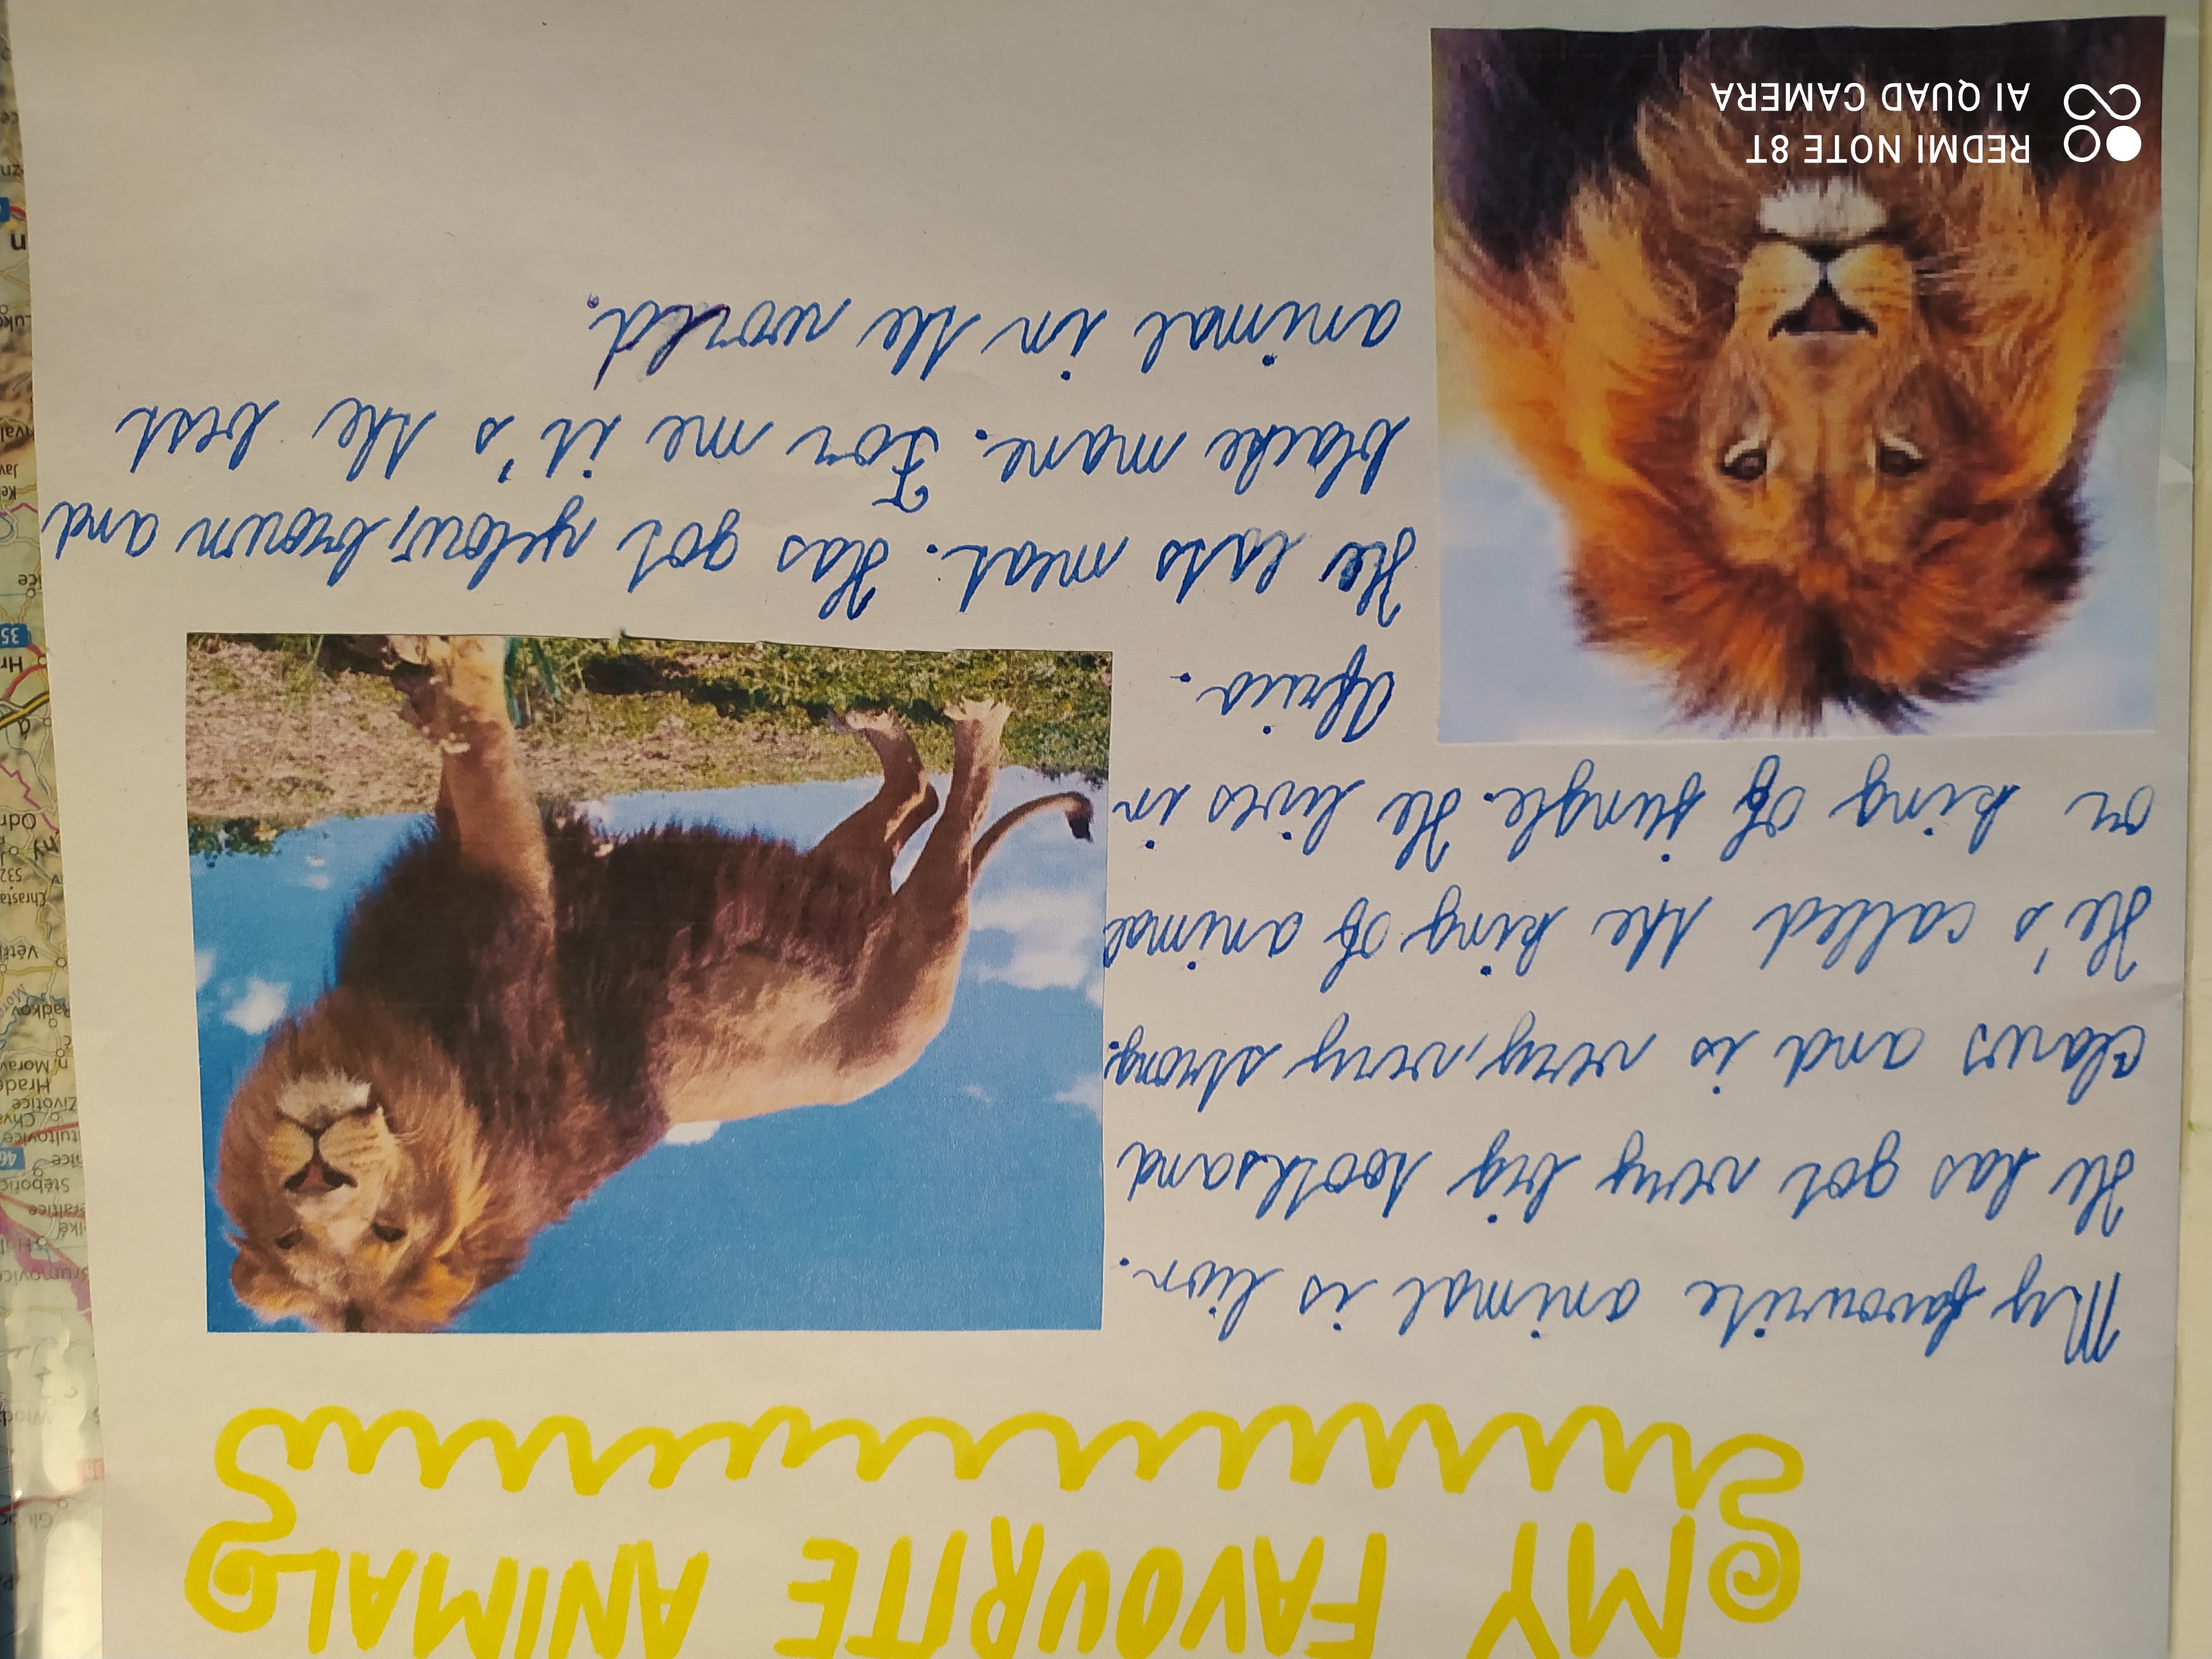 MY FAVOURITE ANIMAL
My favourite animal is lion.
He has got very big tooths and
claws and is very, very strong.
He's called the king of animal
or king of jungle. He lives in
Africa.
He eats meat. Has got yelow, brown and
blacke mane. For me it's the best
animal in the world.
REDMI NOTE 8T
AI QUAD CAMERA